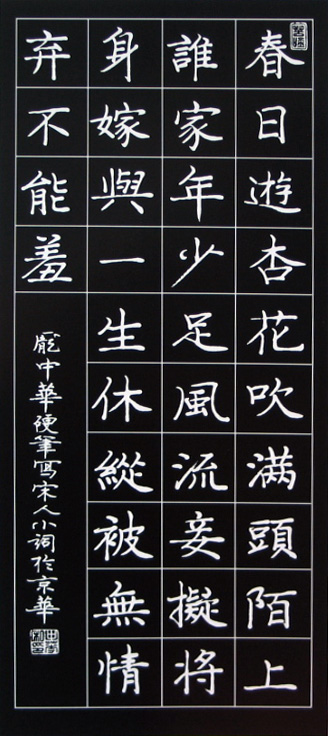 春日遊杏花吹满頭陌上
誰家年少足風流妾擬將
身嫁與一生休縱被無情
弃不能羞
龐中華硬筆寫宋人小詞於京華